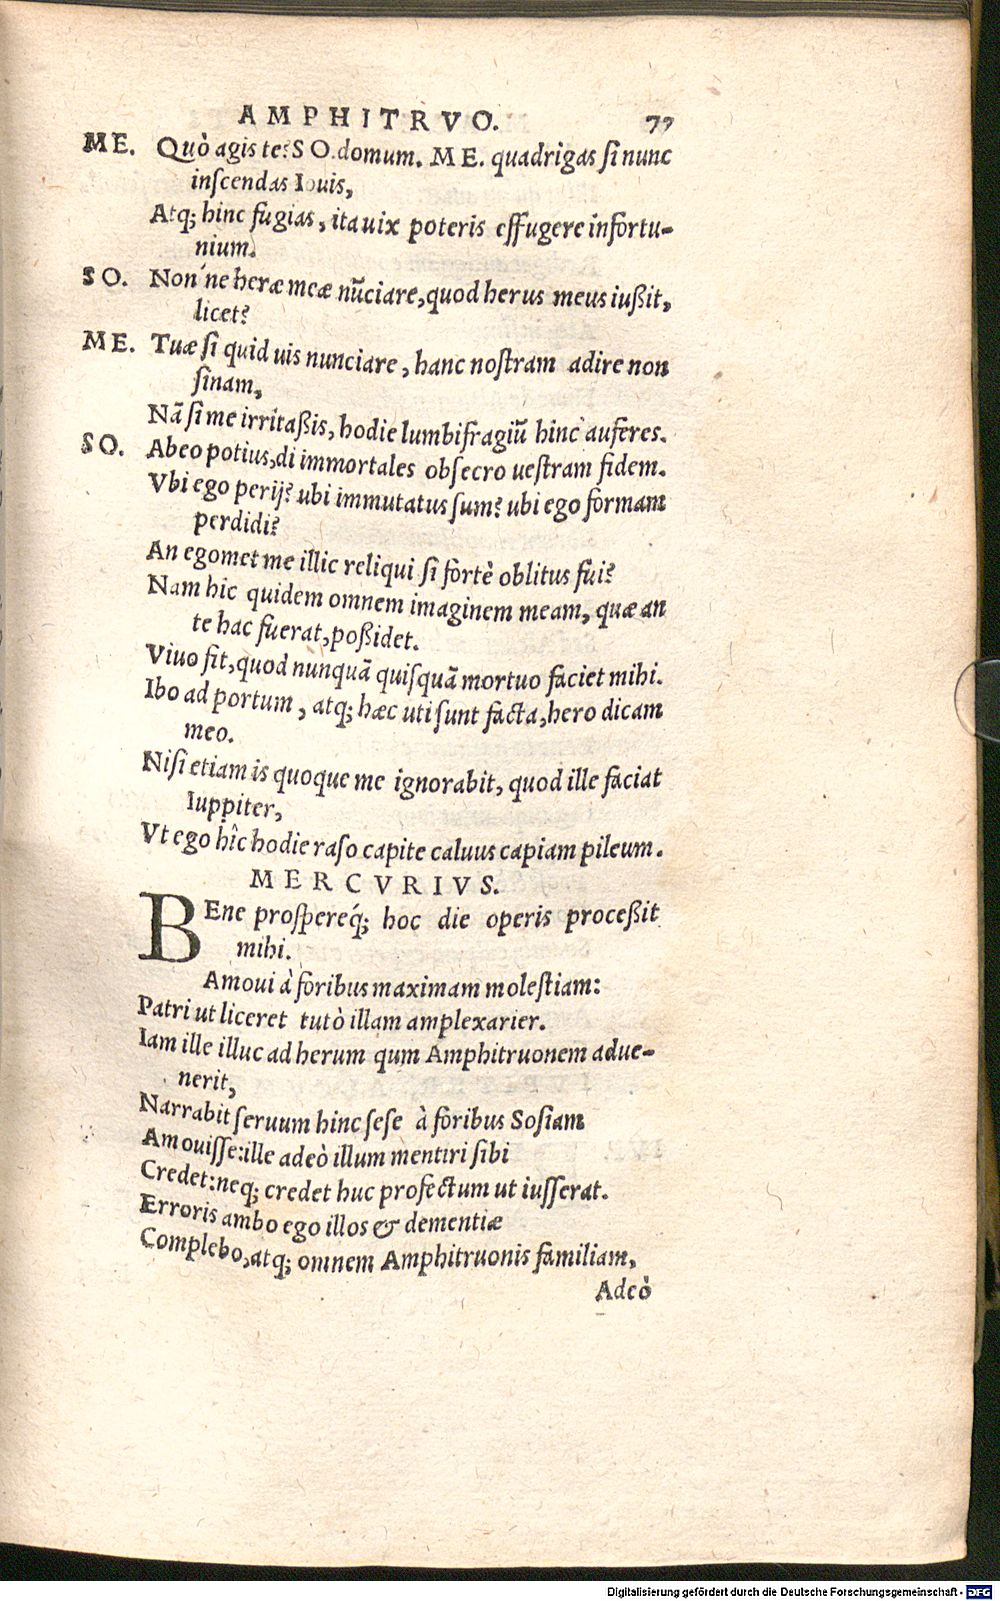 AMPHITRVO. 77
ME. Quò agis te? SO. domum. ME. quadrigas ſi nunc
inſcendas Iouis,
Atq; hinc fugias, ita uix poteris effugere infortu-
nium.
SO. Non'ne heræ meæ nũciare, quod herus meus iußit,
licet?
ME. Tuæ ſi quid uis nunciare, hanc noſtram adire non
ſinam,
Nã ſi me irritaßis, hodie lumbifragiũ hinc auferes.
SO. Abeo potius, di immortales obſecro ueſtram fidem.
Vbi ego perij? ubi immutatus ſum? ubi ego formam
perdidi?
An egomet me illic reliqui ſi fortè oblitus fui?
Nam hic quidem omnem imaginem meam, quæ an
te hac fuerat, poßidet.
Viuo fit, quod nunquã quiſquã mortuo faciet mihi.
Ibo ad portum, atq; hæc uti ſunt facta, hero dicam
meo.
Niſi etiam is quoque me ignorabit, quod ille faciat
Iuppiter,
Vt ego hîc hodie raſo capite caluus capiam pileum.
MERCVRIVS.
BEne proſpereq́; hoc die operis proceßit
mihi.
Amoui à foribus maximam moleſtiam:
Patri ut liceret tutò illam amplexarier.
Iam ille illuc ad herum qum Amphitruonem adue-
nerit,
Narrabit ſeruum hinc ſeſe à foribus Sosiam
Amouiſſe: ille adeò illum mentiri ſibi
Credet: neq; credet huc profectum ut iuſſerat.
Erroris ambo ego illos & dementiæ
Complebo, atq; omnem Amphitruonis familiam,
Adeò
Digitalisierung gefördert durch die Deutsche Forschungsgemeinschaft - DFG